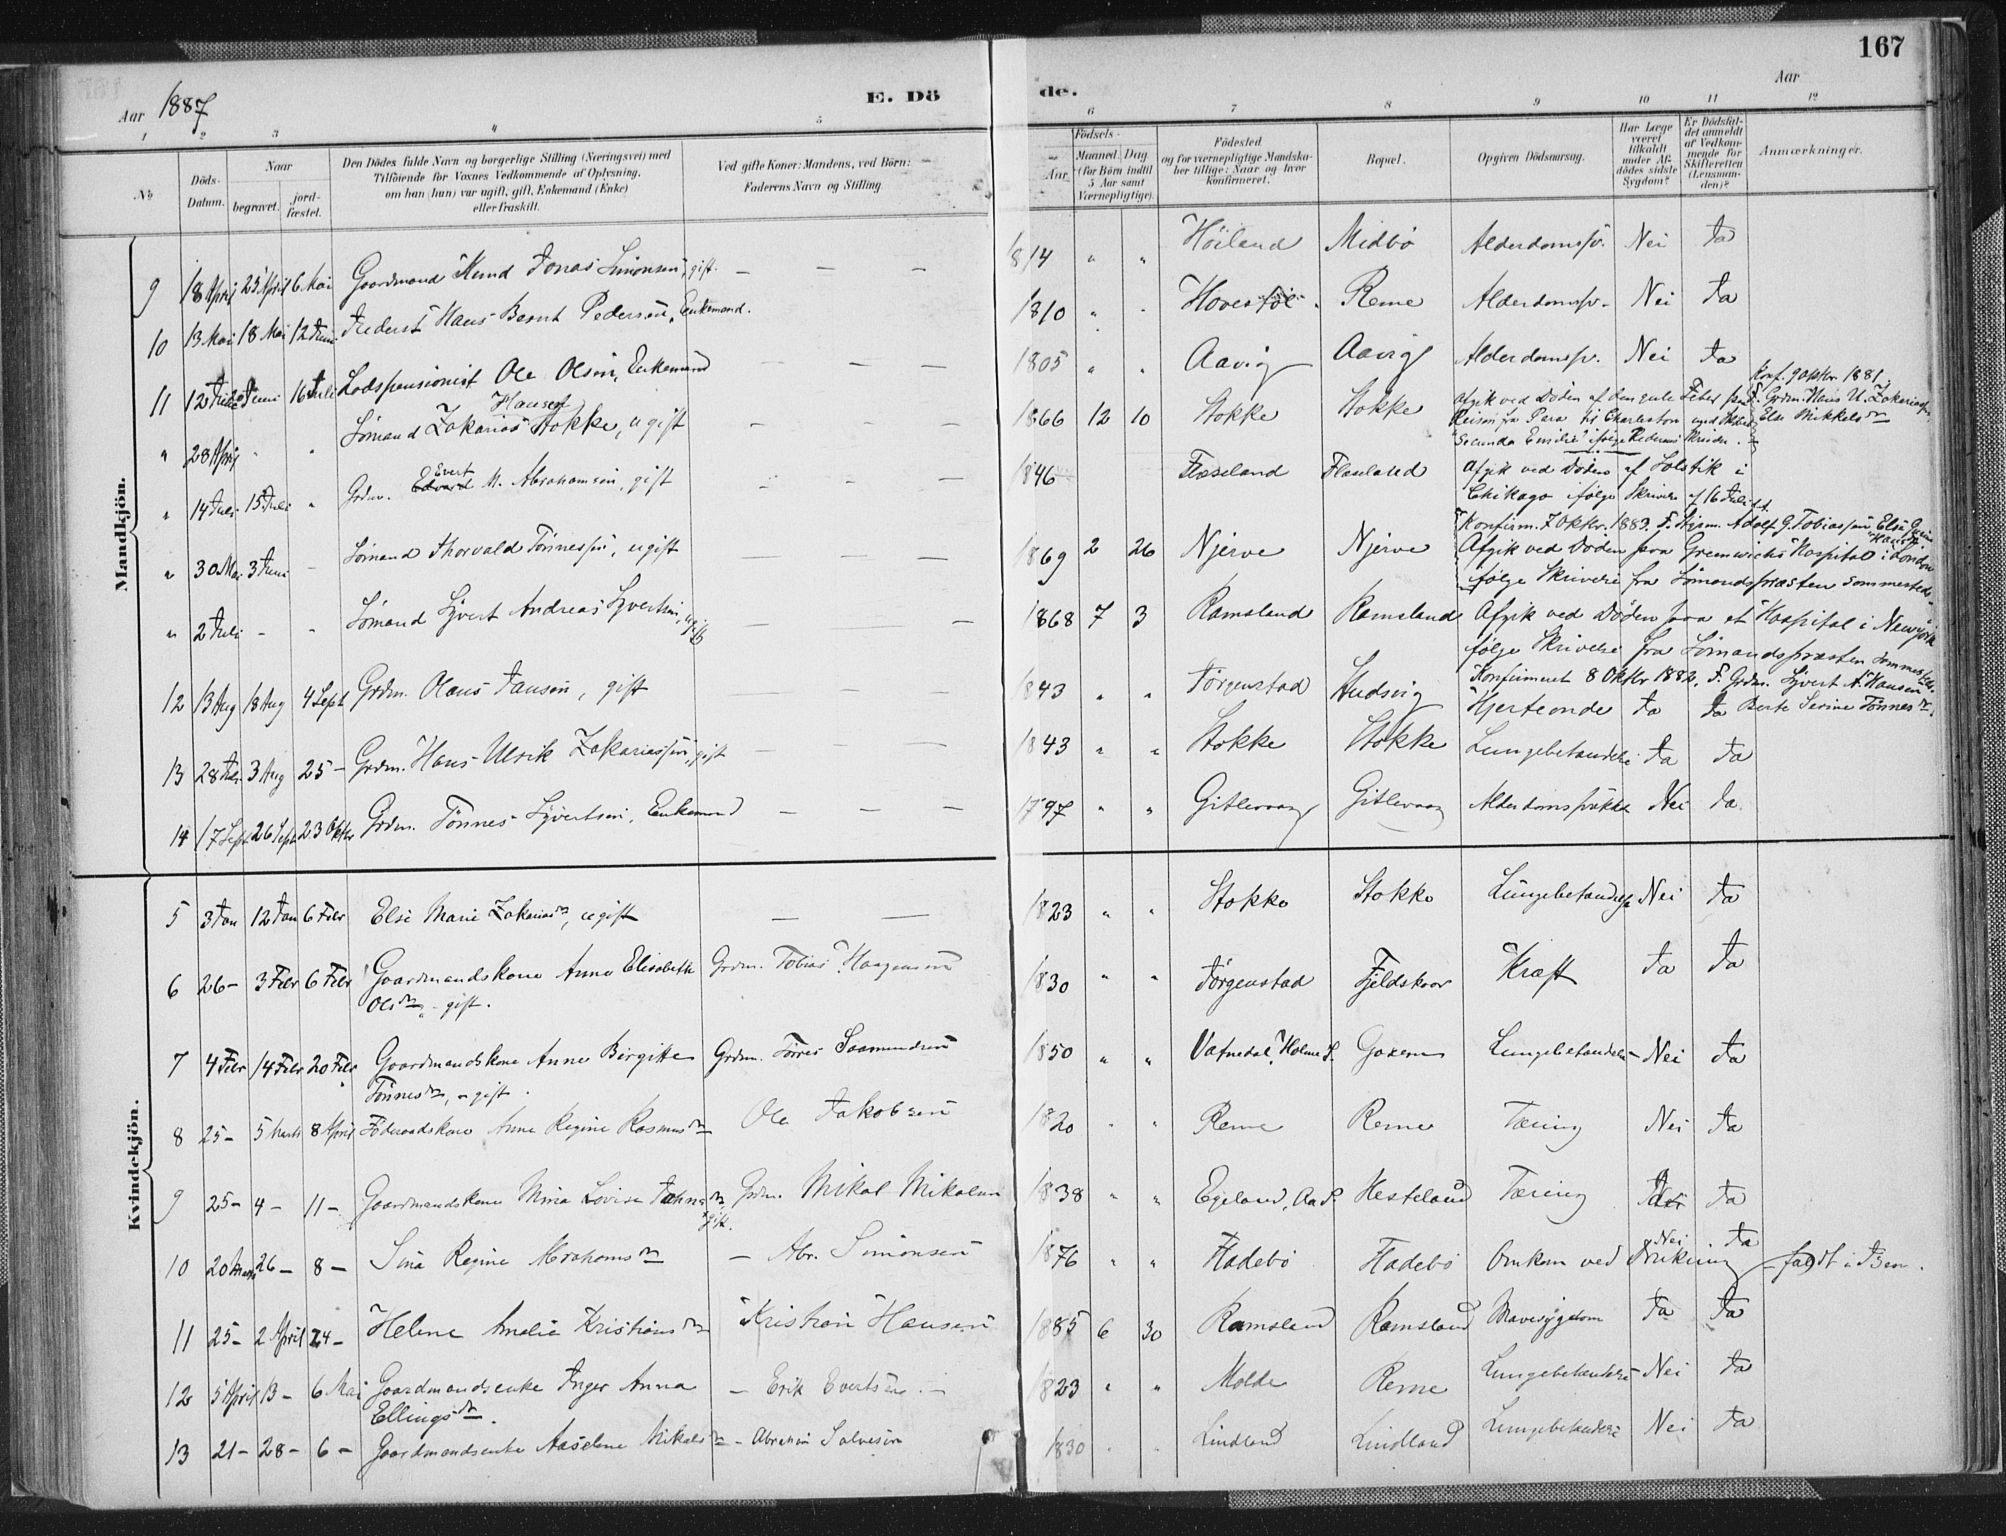 167
Aar 1887
E. Dö
de.
Aar
1 2 3 4 5 6 7 8 9 10 11 12
No
Döds-Datum.
Naar
begravet.
jord-fæstet.
Den Dödes fulde Navn og borgerlige Stilling (Næringsvei) med
Tilföiende for Voxnes Vedkommende af Oplysning,
om han (hun) var ugift, gift, Enkemand (Enke)
eller fraskilt.
Ved gifte Koner: Mandens, ved Börn:
Faderens Navn og Stilling
Födsels-
Aar.
Maaned. Dag
(for Börn indtil
5 Aar samt
Værnepligtige).
Födested
og for værnepligtige Mandska-
ber tillige: Naar og hvor
konfirmeret.
Bopæl.
Opgiven Dödsaarsag.
Har Læge
været
tilkaldt
under Af-
dödes sidste
Sygdom?
Er Dödsfal-
det anmeldt
af Vedkom-
mende for
Skifteretten
(Lensman-
den)?
Anmærkninger.
Mandkjön.
9 18 April 25 April 6 Mai Gaardmand Knud Jonas Simonsen, gift. — — — 1814 " " Höiland Midbö Alderdomssv. Nei Ja
10 13 Mai 18 Mai 12 Juni Hans Bernt Pedersen, Enkemand. 1810 " " Reme Alderdomssv. Nei Ja
11 12 Juni 16 Juli Lodspensionist Ole Olsen, Enkemand — — — 1805 " " Aavig Aavig Alderdomssv. Nei Ja
" 28 April " " Sömand Zakarias Hansen Stokke, ugift — — — 1866 12 10 Stokke Stokke Afgik ved Döden af den gule Feber paa
Reisen fra Para til Charleston med Skibet
"Secunda Emilie" ifölge Rederens Skrivelse.
Konf. 9 Oktbr. 1881,
F. Grdm. Hans U. Zakariassen,
Else Mikkelsdr
" 14 Juli 15 Juli " Grdm. Edvard Evert M. Abrahamsen, gift — — — 1846 Flaseland Flaseland Afgik ved Döden af Solstik i
Chikago ifölge Skrivelse af 16 Juli
" 30 Mai 3 Juni – Sömand Thorvald Tönnessen, ugift — — — 1869 2 26 Njerve Njerve
Konfirm. 7 Oktbr. 1883. F. Adolf G. Tobiassen, Else
Afgik ved Döden paa Greenwichs Hospital i London
ifölge Skrivelse fra Sömandspræsten Sommersted.
" 2 Juli – – Sömand Syvert Andreas Syvertsen, ugift — — — 1868 7 3 Ramsland Ramsland Afgik ved Döden paa et Hospital i Newyork
ifölge Skrivelse fra Sömandspræsten
Konfirmeret 8 Oktbr 1882. F. Grdm. Syvert A. Hansen
Berte Serine Tönnesdr.
12 13 Aug 18 Aug 4 Sept Grdm. Olaus Jansen, gift — — 1843 " " Jörgenstad Hudsvig Hjerteonde Ja Ja
13 28 Juli 3 Aug 25 – Grdm. Hans Ulrik Zakariassen, gift — — — 1843 " " Stokke Stokke Lungebetændelse Ja Ja
14 17 Sept 26 Sept 23 Oktbr Grdm. Tönnes Syvertsen, Enkemand — — — 1797 " " Gitlevaag Gitlevaag Alderdomssvække Nei Ja
Kvindekjön.
5 3 Jan 12 Jan 6 Febr Else Marie Zakariasdr, ugift — — 1823 " " Stokke Stokke Lungebetændelse Nei Ja
6 26 – 3 Febr 6 Febr Gaardmandskone Anne Elisabeth
Olsdr, – gift.
Grdm. Tobias Haagensen 1830 " " Jörgenstad Fjeldskaar Kræft Ja Ja
7 4 Febr 14 Febr 20 Febr Gaardmandskone Anne Birgitte
Tönnesdr, – gift.
Grdm. Torres Saamundsen 1850 " " Vatnedal, Holme S. Gaxern Lungebetændelse Nei Ja
8 25 – 5 Marts 8 April Föderaadskone Anne Regine Rasmusdr Ole Jakobsen 1820 " " Reme Reme Tæring Nei Ja
9 25 – 4 – 11 – Gaardmandskone Mina Lovise Jahnsdr,
gift.
Grdm. Mikal Mikalsen 1838 " " Egeland, Aa S. Hesteland Tæring Ja Ja
10 20 Marts 26 – 8 – Sina Regine Abrahamsdr – Abr. Simonsen 1876 " " Fladebö Fladebö Omkom ved Drukning Nei Ja faldt i Isen.
11 25 – 2 April 24 – Helene Amalie Kristiansdr Kristian Hansen 1885 6 30 Ramsland Ramsland Mavesygdom Ja Ja
12 5 April 13 – 6 Mai Gaardmandsenke Inger Anna
Ellingsdr.
– Erik Evertsen. – 1823 " " Molde Reme Lungebetændelse Nei Ja
13 21 – 28 – 6 – Gaardmandsenke Aaselene Mikalsdr – Abraham Salvesen 1830 " " Lindland Lindland Lungebetændelse Nei Ja